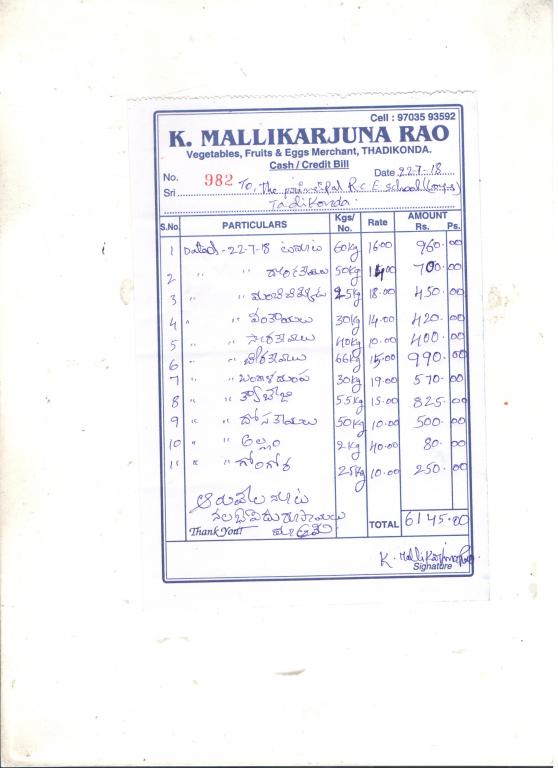 Cell : 97035 93592
K. MALLIKARJUNA RAO
Vegetables, Fruits & Eggs Merchant, THADIKONDA.
Cash / Credit Bill
No. 982 Date 22-7-18
Sri To, The principal R.C.E. school
Tadikonda
S.No. PARTICULARS Kgs/No. Rate AMOUNT Rs. Ps.
1 Dated-22-7-18 60kg 16.00 960.00
2 " " 50kg 14.00 700.00
3 " " 25kg 18.00 450.00
4 " " వంకాయలు 30kg 14.00 420.00
5 " " సొరకాయలు 40kg 10.00 400.00
6 " " బీరకాయలు 66kg 15.00 990.00
7 " " బంగాళదుంప 30kg 19.00 570.00
8 " " 55kg 15.00 825.00
9 " " దోసకాయలు 50kg 10.00 500.00
10 " " అల్లం 2kg 40.00 80.00
11 " " గోంగోర 25kg 10.00 250.00
Thank You!
TOTAL 6145.00
K. Mallikarjuna Rao
Signature